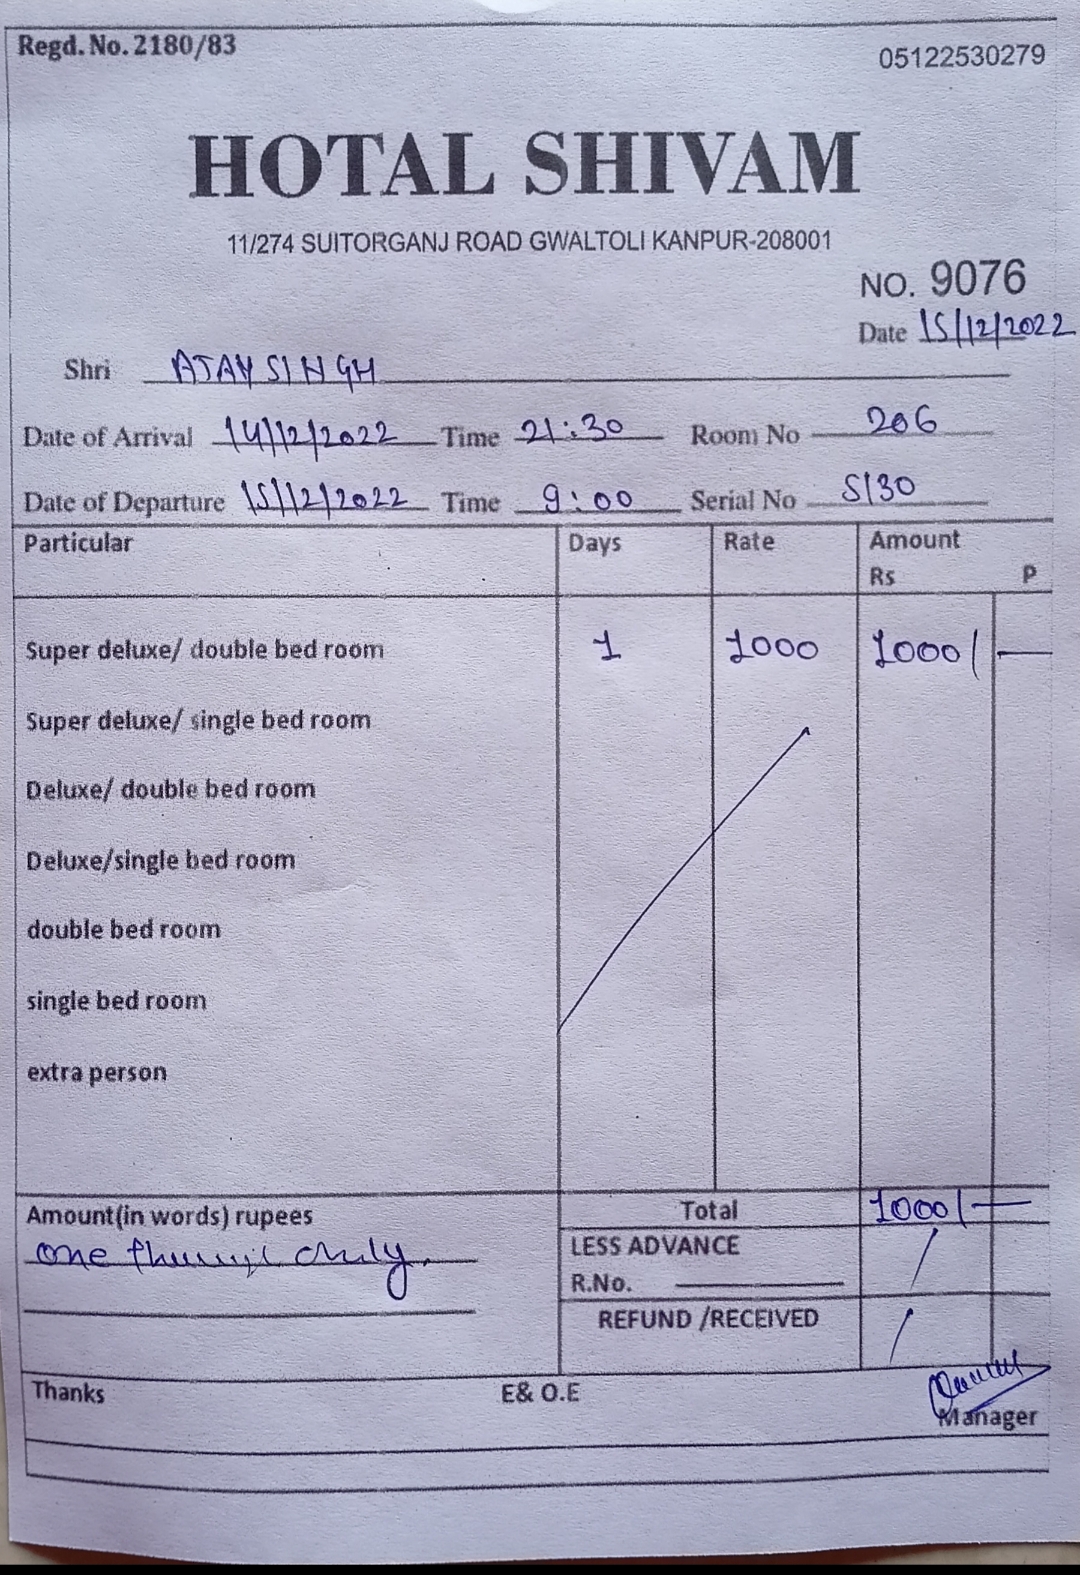 Regd. No. 2180/83
05122530279
HOTAL SHIVAM
11/274 SUITORGANJ ROAD GWALTOLI KANPUR-208001
NO. 9076
Date 15/12/2022
Shri AJAY SINGH
Date of Arrival 14/12/2022 Time 21:30 Room No 206
Date of Departure 15/12/2022 Time 9:00 Serial No 5130
Particular Days Rate Amount
Rs P
Super deluxe/ double bed room 1 1000 1000/—
Super deluxe/ single bed room
Deluxe/ double bed room
Deluxe/single bed room
double bed room
single bed room
extra person
Amount(in words) rupees Total 1000/—
one only. LESS ADVANCE
R.No.
REFUND /RECEIVED
Thanks E& O.E
Manager